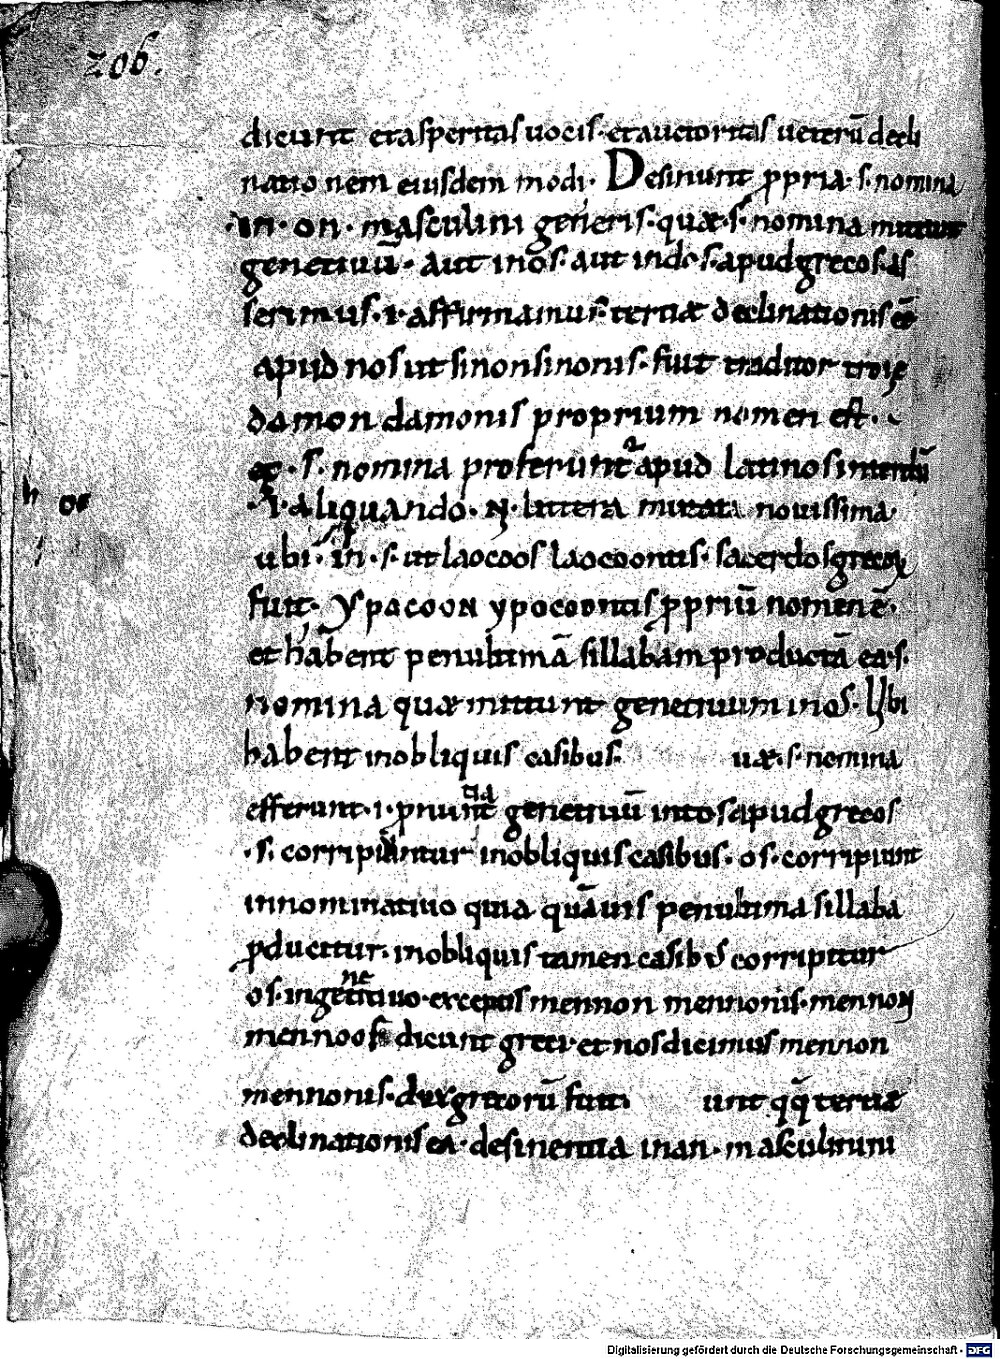 206.
dicunt et asperitas uocis · et auctoritas ueterū decli
natio nem eiusdem modi · Desinunt ꝓpria · s · nomina
· in · on · masculini generis · quæ · s · nomina mittunt
genetiuū · aut in os · aut in do · s · apud grecos · as
serimus · i · affirmamus · tertiæ declinationis eē
apud nos ut sinon sinonis · fuit traditor troię
damon damonis proprium nomen est ·
· s · nomina proferunt apud latinos interdū
· aliquando · N · littera mutata nouissima
h os
ubi · in · s · ut laocoos laocoontis · sacerdos grecoꝝ
fuit · ypocooN ypocoontis ꝓpriū nomen ē ·
et habent penultimā sillabam productā ea · s ·
nomina quæ mittunt genetiuum in os · Ubi
habent in obliquis casibus · uæ · s · nomina
efferunt · i · genetiuū in tos apud grecos
· s · corripiuntur in obliquis casibus · os · corripiunt
in nominatiuo quia quāuis penultima sillaba
ꝓducitur · in obliquis tamen casibus corripitur
ne
os · in genitiuo · exceptis mennon mennonis · mennoN
mennoos dicunt greci · et nos dicimus mennon
mennonis · dux grecorū fuit · unt qq̄ tertiæ
declinationis ea · desinentia in an · masculinini
Digitalisierung gefördert durch die Deutsche Forschungsgemeinschaft - DFG